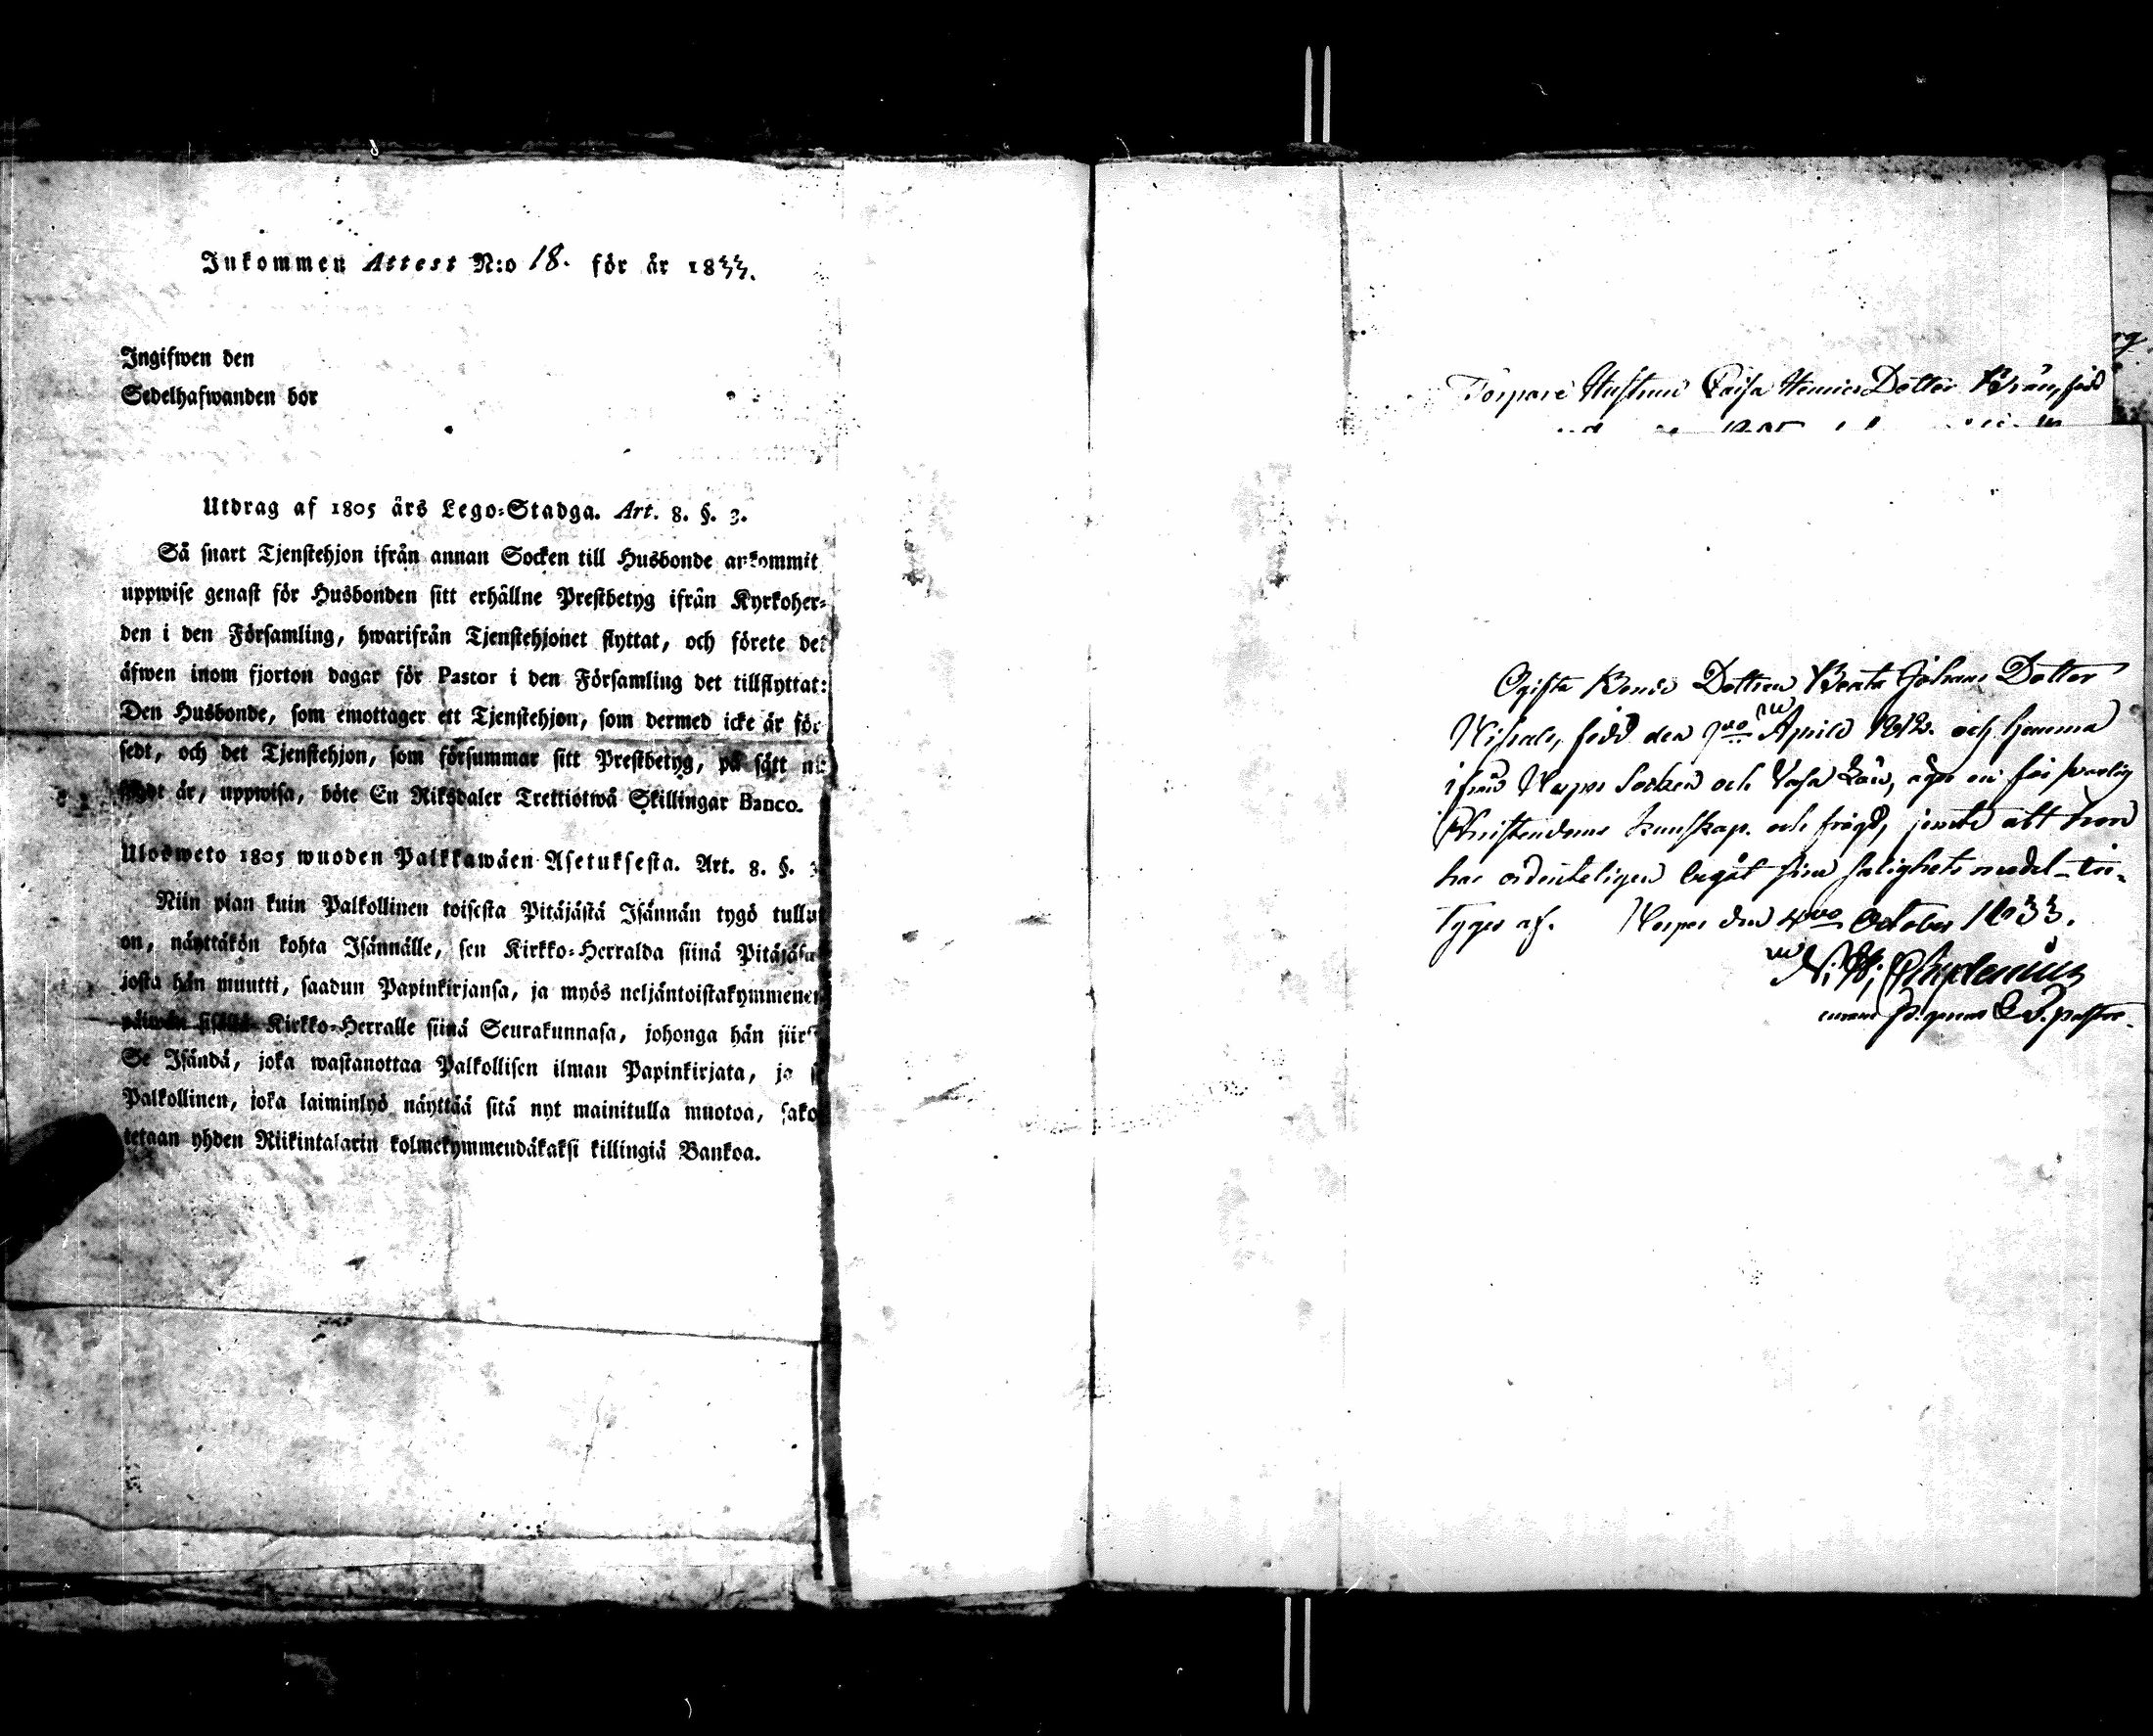 Inkommen Attest N:o 18. för år 1833.
Ingifwen den
Sedelhafwanden bor
Utdrag af 1805 års Lego-Stadga. Art. 8. §. 3.
Så snart Tjenstehjon ifrån annan Socken till Husbonde ankommit
uppwise genast för Husbonden sitt erhållne Prestbetyg ifrån Kyrkoher-
den i den Församling, hwarifrån Tjenstehjonet flyttat, och förete det
äfwen inom fjorton dagar för Pastor i den Församling det tillflyttat:
Den Husbonde, som emottager ett Tjenstehjon, som dermed icke är för
sedt, och det Tjenstehjon, som försummar sitt Prestbetyg, på sätt nu
är, uppwisa, böte En Riksdaler Trettiotwå Skillingar Banco.
Ulosweto 1805 wuoden Palkkawäen Asetuksesta. Art. 8. §. 3
Niin pian kuin Palkollinen toisesta Pitäjästä Isännän tygö tullut
on, näyttäkön kohta Isännälle, sen Kirkko-Herralda siinä Pitäjäsä
josta hän muutti, saadun Papinkirjansa, ja myös neljäntoistakymmenen
päiwän sisällä Kirkko-Herralle siinä Seurakunnasa, johonga hän siir
Se Isändä, joka wastanottaa Palkollisen ilman Papinkirjata, ja se
Palkollinen, joka laiminlyö näyttää sitä nyt mainitulla muotoa, sako
tetaan yhden Riikintalarin kolmekymmendäkaksi killingiä Bankoa.
Torpare Hustrun Caisa Henrics Dotter född
Ogifta Bonde Dottren Beata Johans Dotter
född den April 1812. och hemma
ifrån Socken och Vasa Län, äger en försvarlig
Christendoms kunskap och frägd, jemte att hon
har ordenteligen begåt sina salighets medel - be-
tyges af. den 4 October 1833.
Chydenius